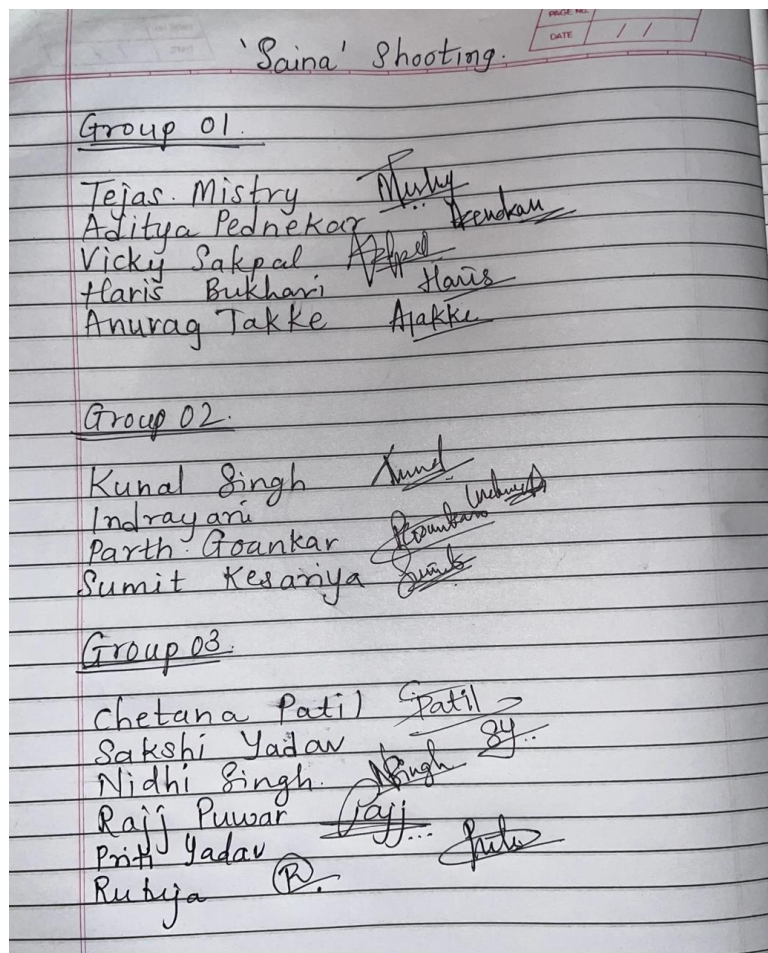 PAGE NO.
DATE / /
'Saina' Shooting.
Group 01.
Tejas. Mistry
Aditya Pednekar
Vicky Sakpal
Haris Bukhari Haris
Anurag Takke ATakke
Group 02.
Kunal Singh
Indrayani
Parth. Goankar
Sumit Kesariya
Group 03.
Chetana Patil C.Patil
Sakshi Yadav SY..
Nidhi Singh. NSingh
Rajj Puwar Rajj...
Priti Yadav
Rutuja R.